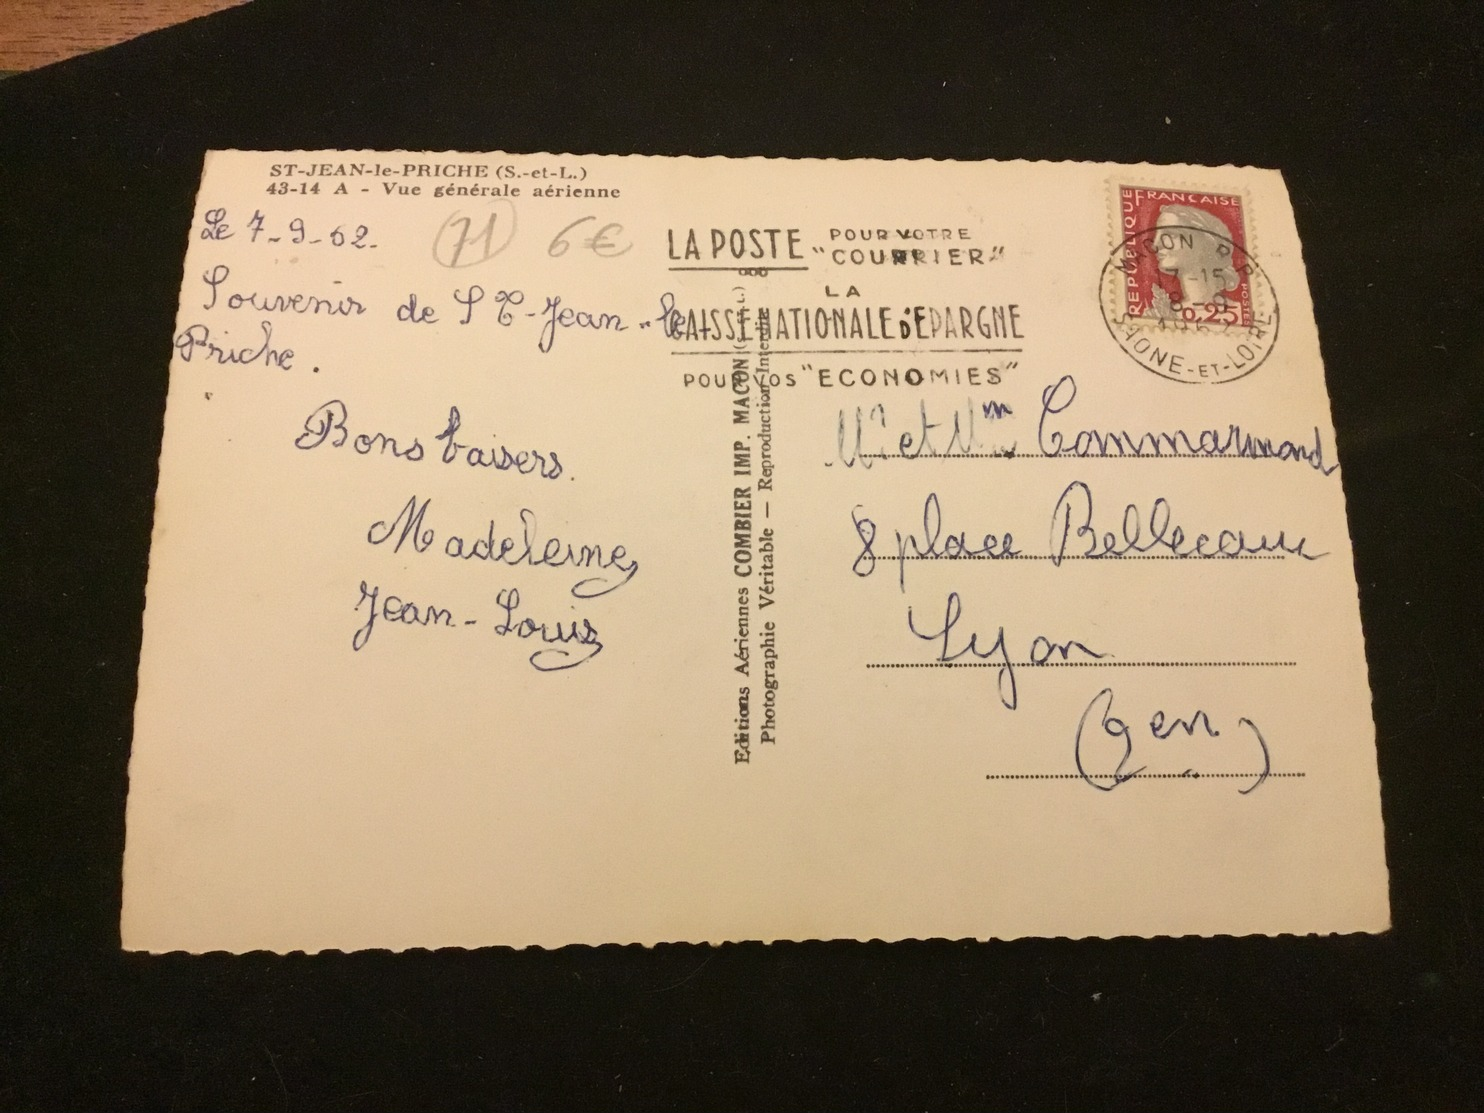 ST-JEAN-le-PRICHE (S.-et-L.)
43-14 A - Vue générale aérienne
Le 7-9-62.
71 6€
Souvenir de St-Jean-le
Priche.
Bons baisers.
Madeleine
Jean-Louis
LA POSTE POUR VOTRE
"COURRIER"
LA
CAISSE NATIONALE D'EPARGNE
POUR VOS "ECONOMIES"
Editions Aériennes COMBIER IMP. MACON (S.-et-L.)
Photographie Véritable — Reproduction Interdite
REPUBLIQUE FRANÇAISE
POSTES
0,25
MACON R.P.
7-15
8-9
SAONE-ET-LOIRE
Mr et Mme Commarmond
8 place Bellecour
Lyon